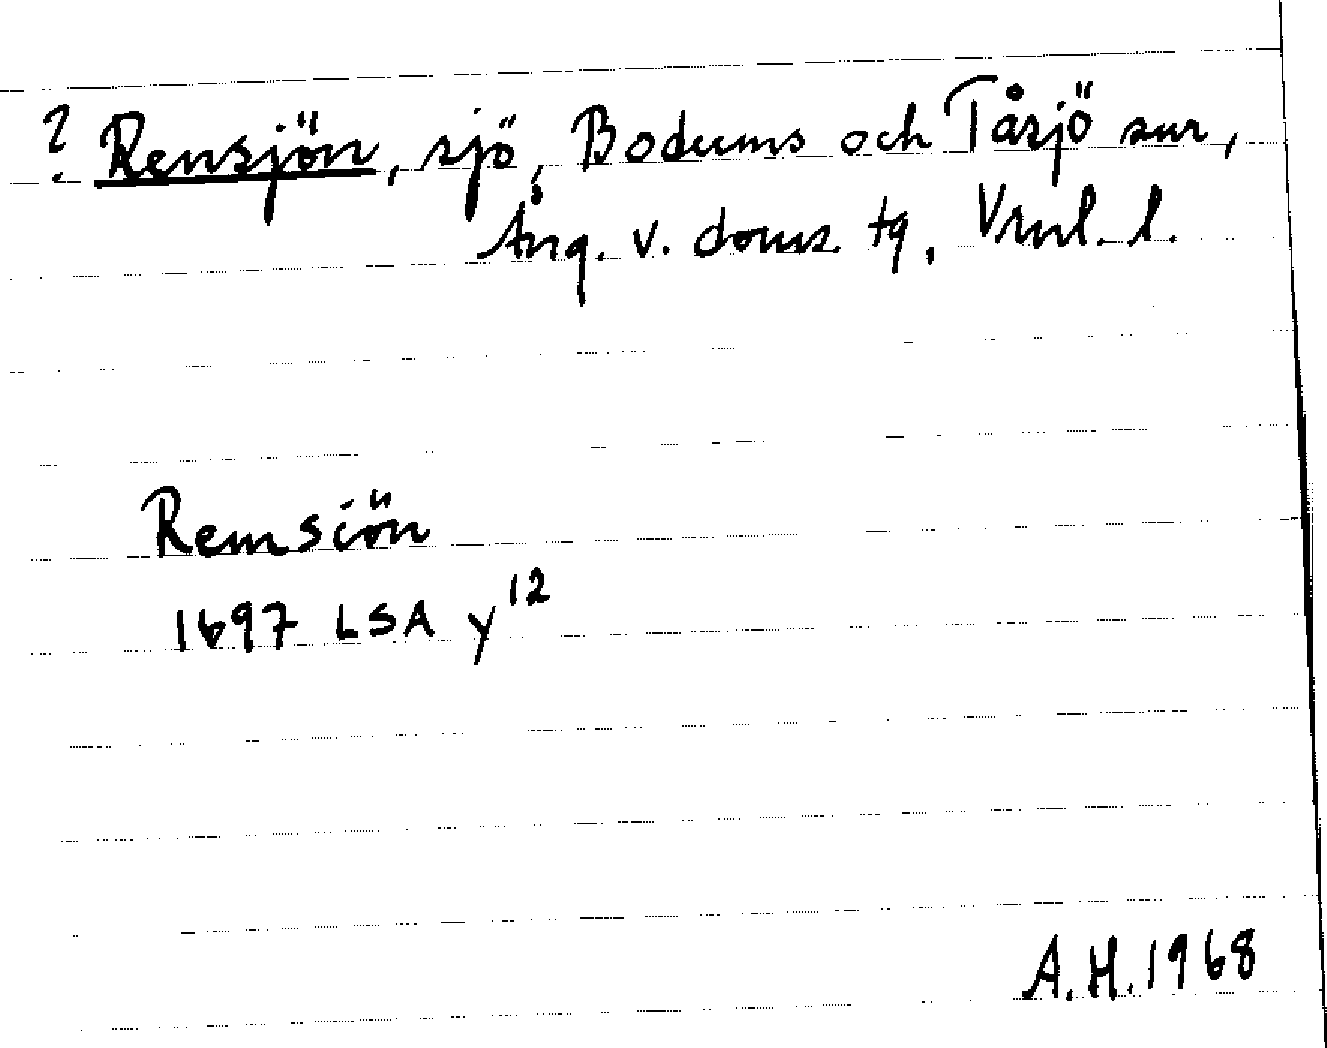 ? Rensjön, sjö, Bodums och Tåsjö snr,
Ång. v. doms. tg, Vrnl. l.
Remsiön
1697 LSA y12
A.H. 1968